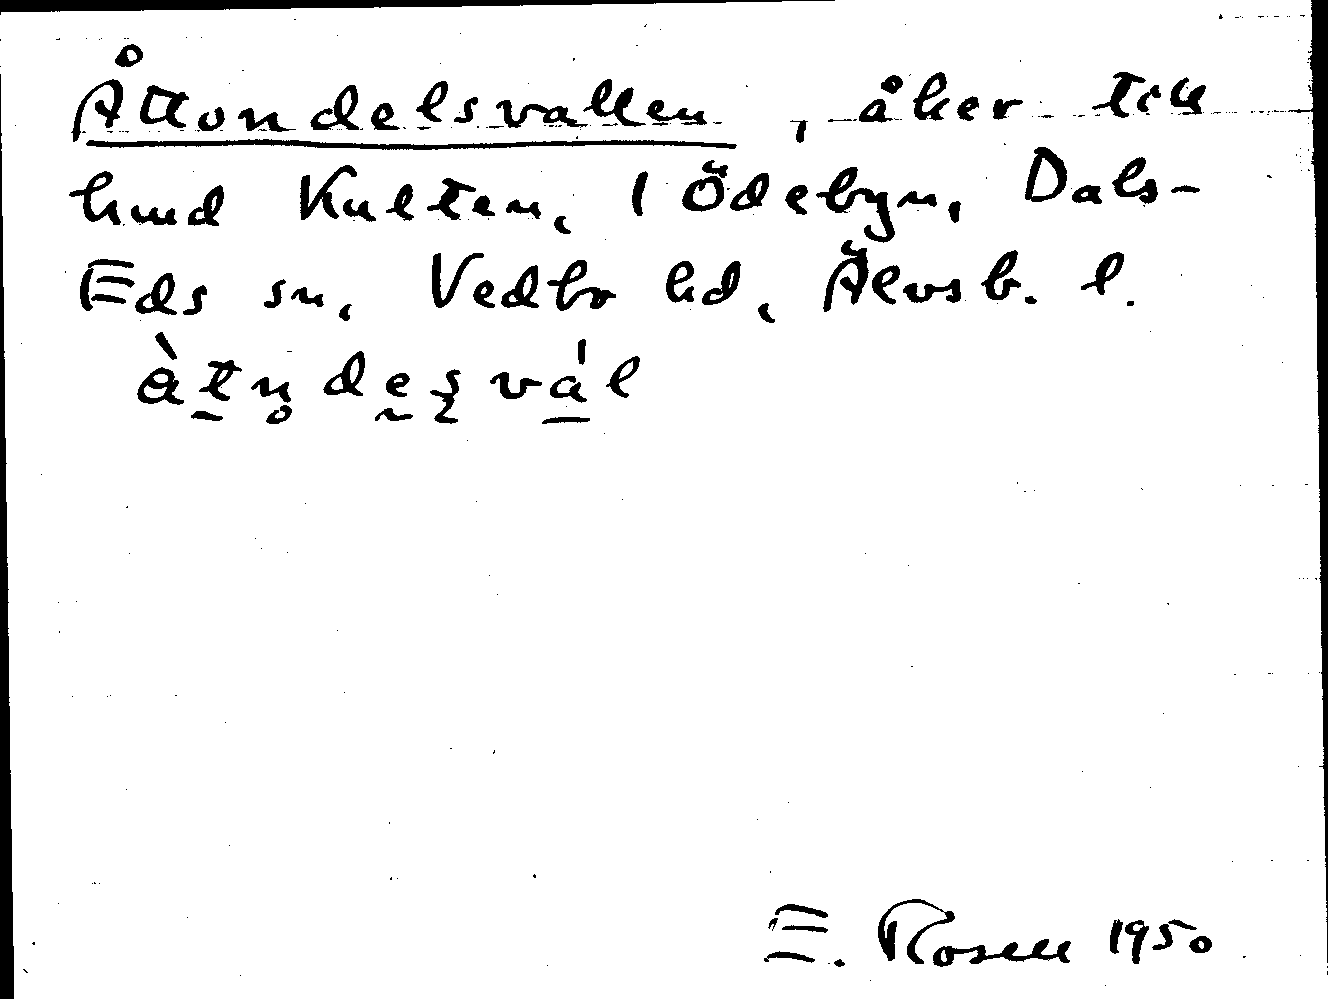 Åttondelsvallen, åker till
hmd Kulten, 1 Ödebyn, Dals-
Eds sn, Vedbo hd, Älvsb. l.
àt̠n̥dḛșvá̠l
E. Rosell 1950